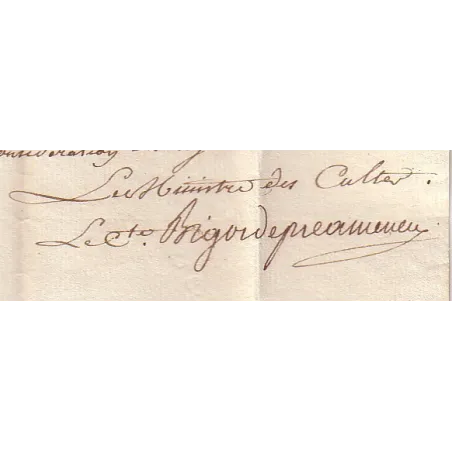 Le Ministre des Cultes.
Le Cte. Bigot de preameneu